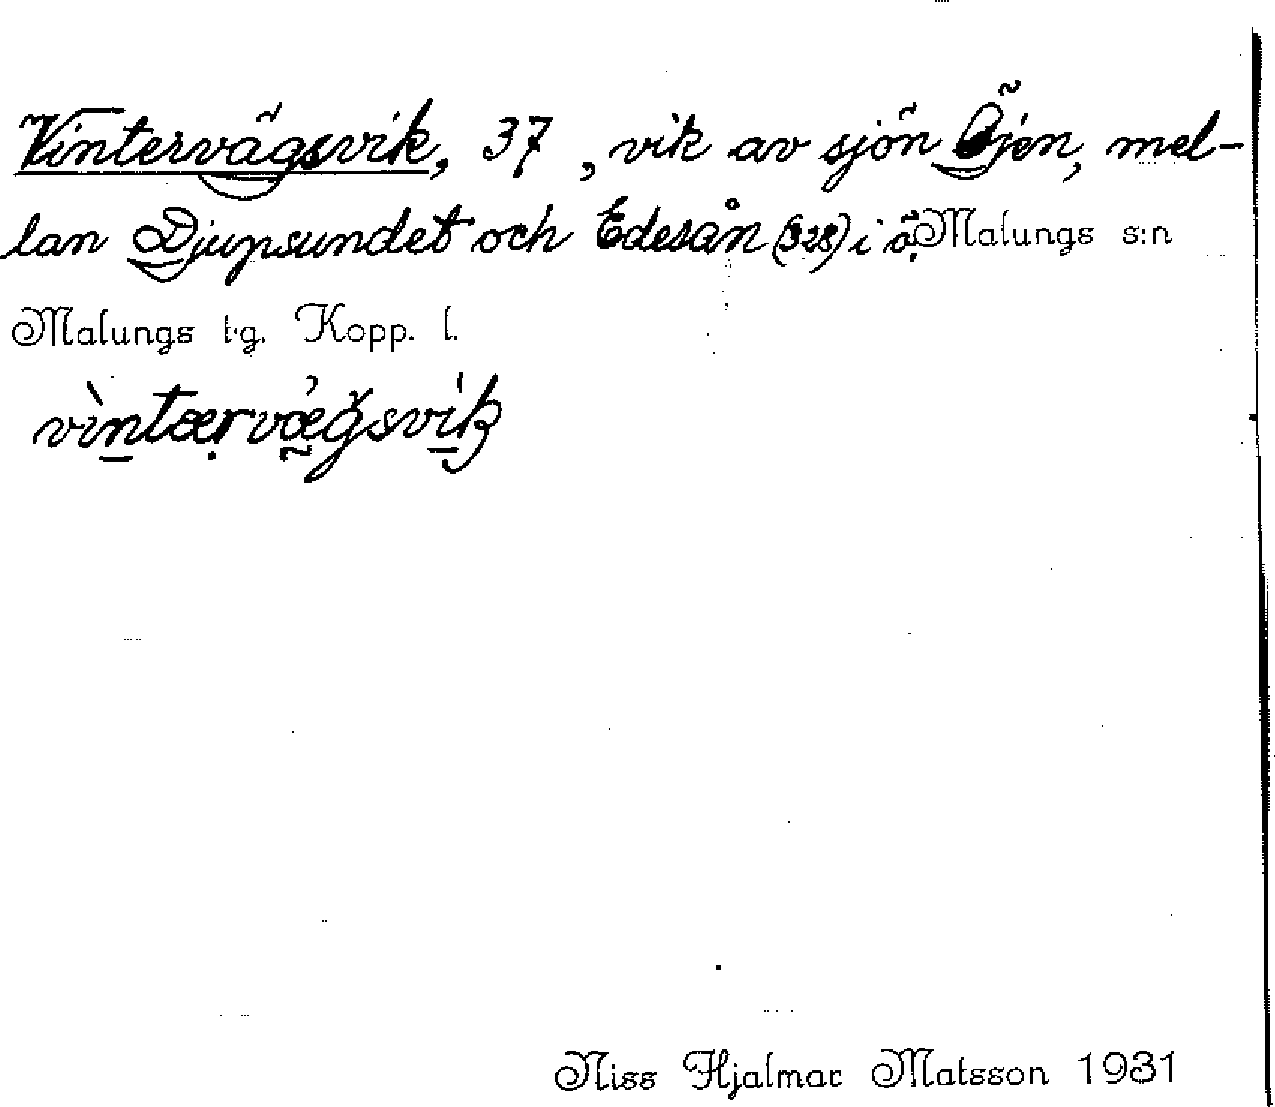 Vintervägsvik, 37, vik av sjön Öjen, mel-
lan Djupsundet och Edesån (328) i ö. Malungs s:n
Malungs t.g. Kopp. l.
vìntærvǽgsvìk
Niss Hjalmar Matsson 1931